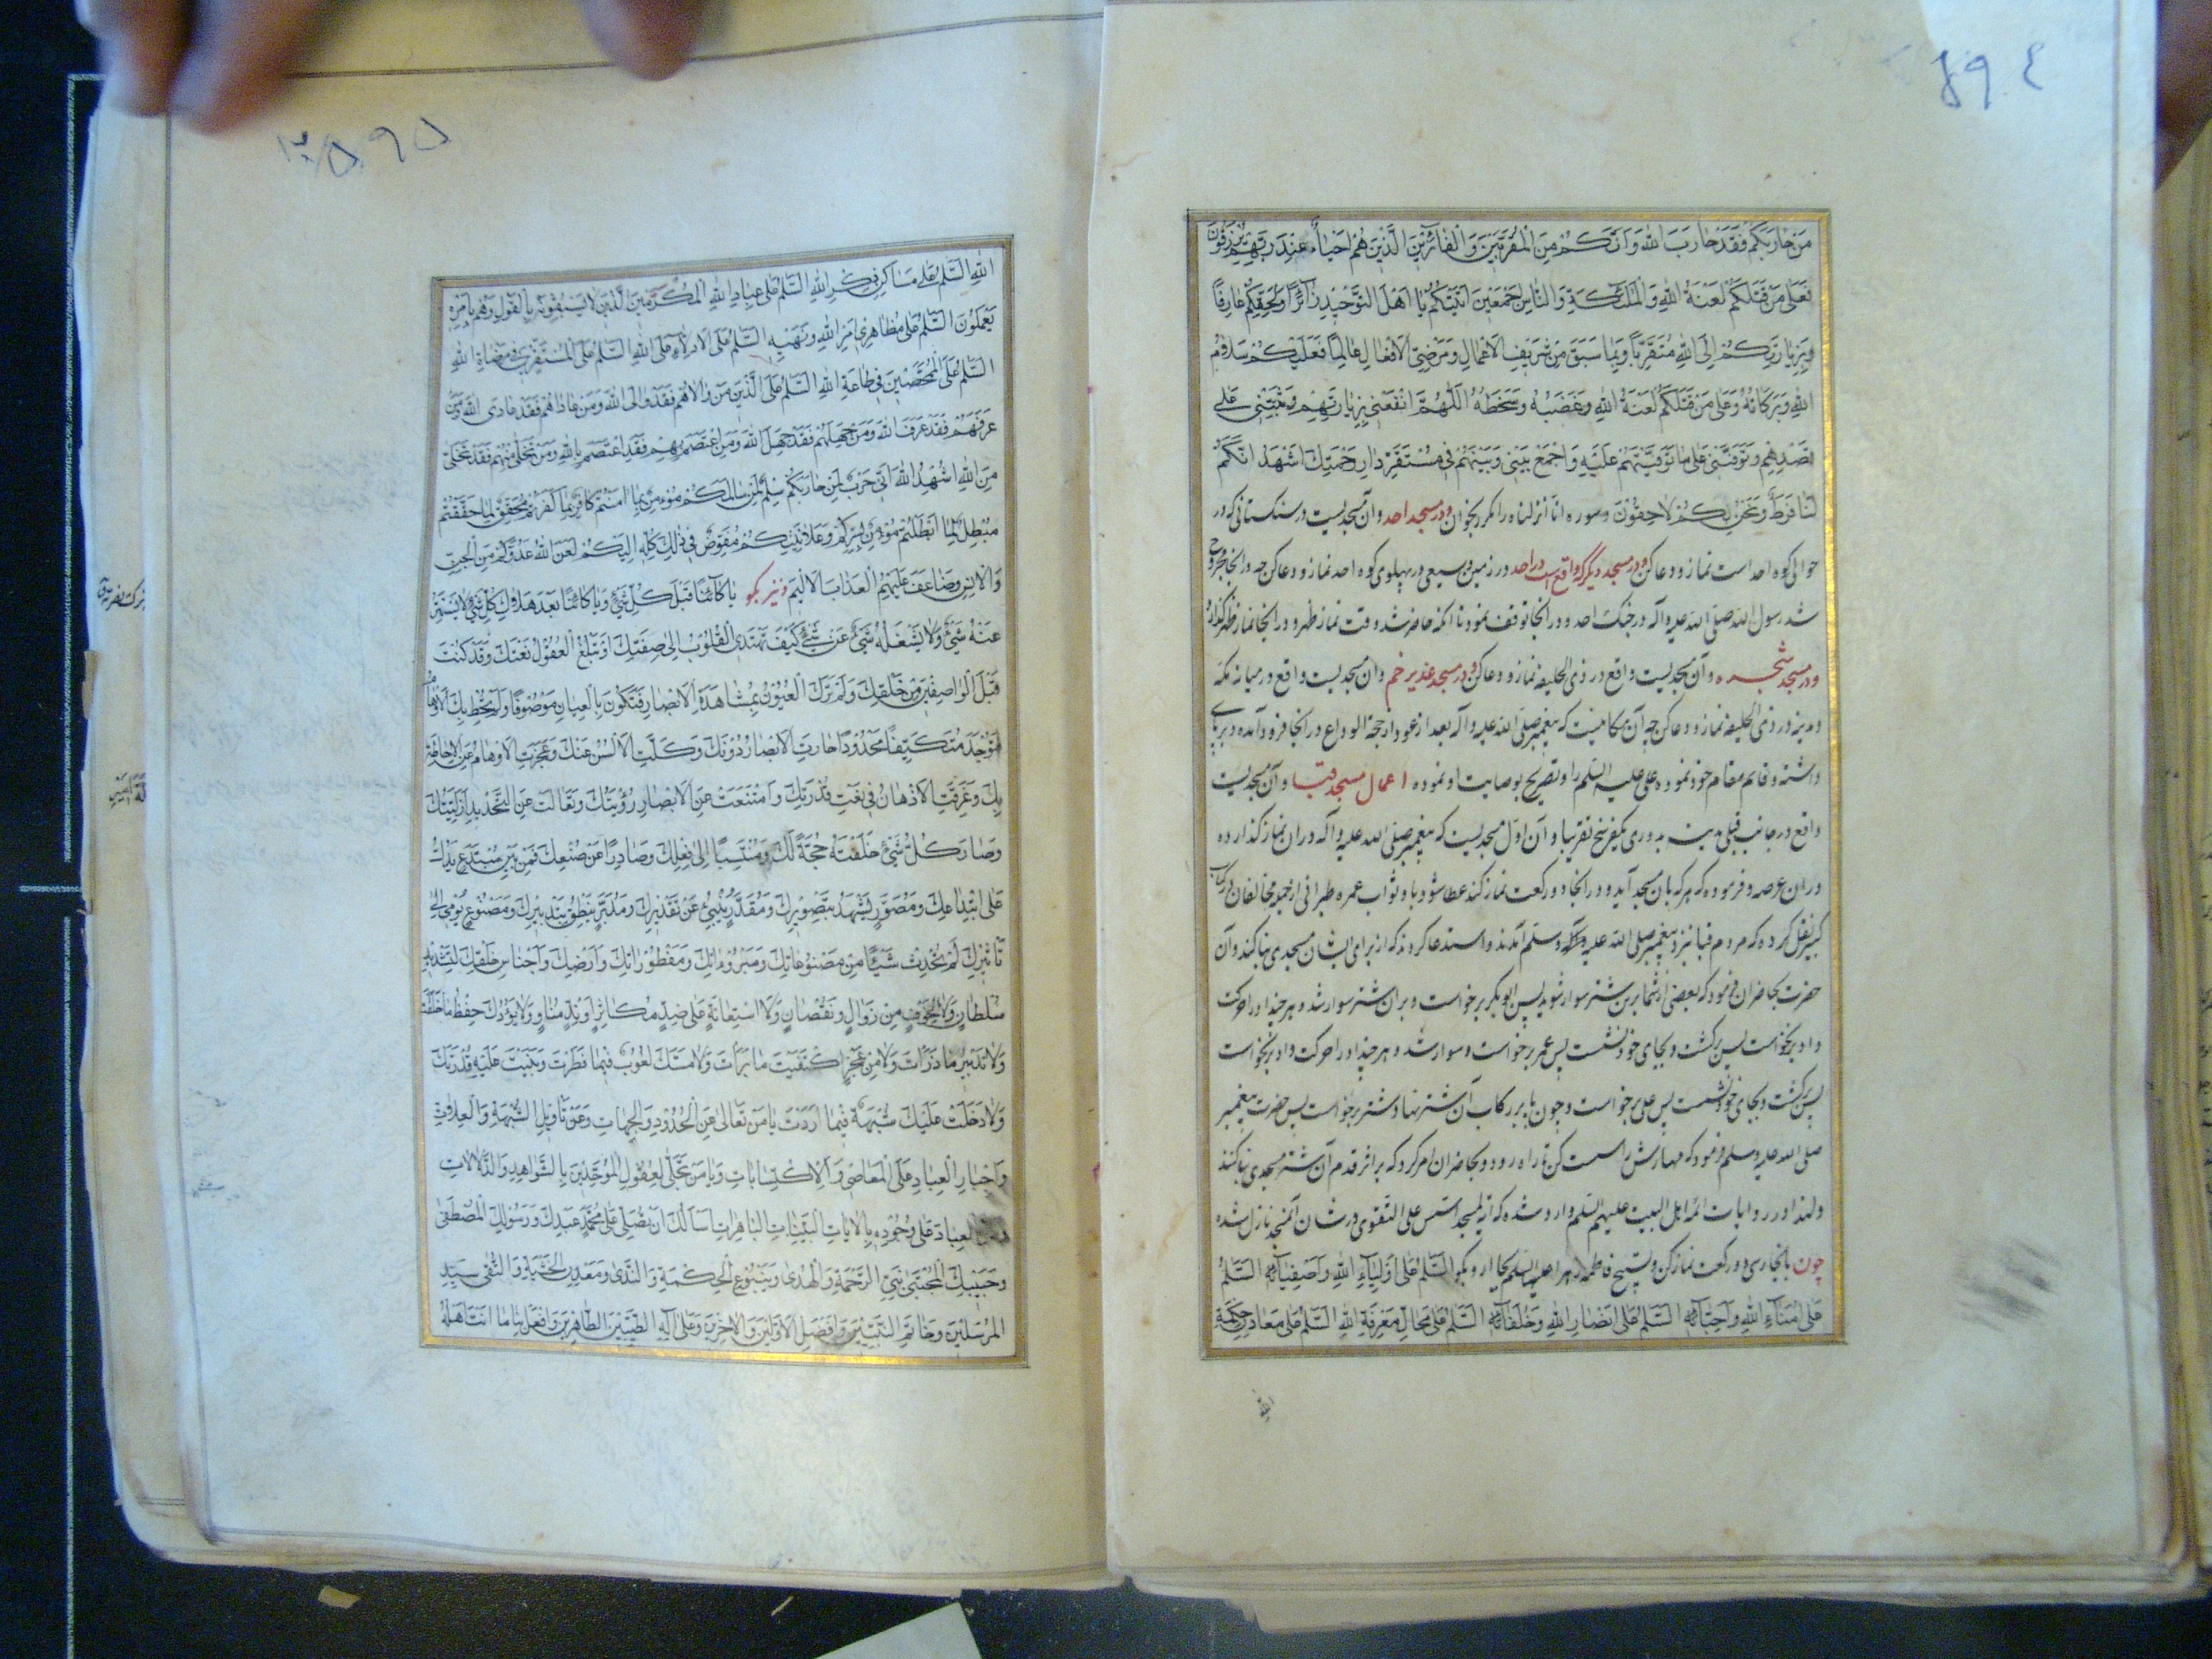 ٤ ٥٩
مَن حارَبَكُم فَقَد حارَبَ اللهَ وَاَنَّكُم مِنَ المُقَرَّبينَ وَالفائِزينَ الَّذينَ هُم اَحياءٌ عِندَ رَبِّهِم يُرزَقُونَ
فَعَلى مَن قَتَلَكُم لَعنَةُ اللهِ وَالمَلئِكَةِ وَالنّاسِ اَجمَعينَ اَتَيتُكُم يا اَهلَ التَّوحيدِ زائِرًا وَلِحَقِّكُم عارِفًا
وَبِزِيارَتِكُم اِلَى اللهِ مُتَقَرِّبًا وَبِما سَبَقَ مِن شَريفِ الاَعمالِ وَمَرضِيِّ الاَفعالِ عالِمًا فَعَلَيكُم سَلامُ
اللهِ وَبَرَكاتُهُ وَعَلى مَن قَتَلَكُم لَعنَةُ اللهِ وَغَضَبُهُ وَسَخَطُهُ اَللّهُمَّ انفَعني بِزِيارَتِهِم وَثَبِّتني عَلى
قَصدِهِم وَتَوَفَّني عَلى ما تَوَفَّيتَهُم عَلَيهِ وَاجمَع بَيني وَبَينَهُم في مُستَقَرِّ دارِ رَحمَتِكَ اَشهَدُ اَنَّكُم
لَنا فَرَطٌ وَنَحنُ بِكُم لاحِقُونَ وسوره انا انزلناه را مکرر بخوان ودر مسجد احد وآن مسجدیست در سنکستانی که در
حوالی کوه احد است نماز ودعا کن ودر مسجد دیگر که واقع است در احد در زمین وسیعی در پهلوی کوه احد نماز ودعا کن چه در انجا مجروح
شد رسول الله صلی الله علیه واله در جنک احد ودر انجا توقف نمود تا انکه حاضر شد وقت نماز ظهر ودر انجا نماز ظهر گذارد
ودر مسجد شجره وآن مسجدیست واقع در ذی الحلیفه نماز ودعا کن ودر مسجد غدیر خم وان مسجدیست واقع در میانه مکه
ومدینه در ذی الحلیفه نماز ودعا کن چه آن مکانیست که پیغمبر صلی الله علیه واله بعد از عود از حجة الوداع در انجا فرود آمده وبر پای
داشته وقایم مقام خود نموده علی علیه السلم را وتصریح بوصایت او نموده اعمال مسجد قبا وآن مسجدیست
واقع در جانب قبلی مدینه بدوری یکفرسخ تقریبا وآن اول مسجدیست که پیغمبر صلی الله علیه واله دران نماز کذارده
دران عرصه وفرموده که هر که بان مسجد آید ودر انجا دو رکعت نماز کند عطا شود باو ثواب عمره طبرانی از جمله مخالفان در کتاب
کبیر نقل کرده که مردم قبا نزد پیغمبر صلی الله علیه واله وسلم آمدند واستدعا کردند که از برای ایشان مسجدی بنا کند وآن
حضرت بحاضران فرمود که بعضی از شما برین شتر سوار شوید پس ابو بکر برخواست وبران شتر سوار شد وهر چند او را حرکت
داد بر نخواست پس برکشت وبجای خود نشست پس عمر برخواست وسوار شد وهر چند او را حرکت داد بر نخواست
پس برکشت وبجای خود نشست پس علی برخواست وچون پا بر رکاب آن شتر نهاد شتر برخواست پس حضرت پیغمبر
صلی الله علیه وسلم فرمود که مهارش را سست کن تا راه رود وبحاضران امر کرد که بر اثر قدم آن شتر مسجدی بنا کنند
ولهذا در روایات ائمه اهل البیت علیهم السلم وارد شده که آیه لمسجد اسس علی التقوی در شان آنمسجد نازل شده
چون بانجا رسی دو رکعت نماز کن وتسبیح فاطمه زهرا علیها السلم بجا ار وبکو اَلسَّلمُ عَلى اَولِياءِ اللهِ وَاَصفِيائِهِ اَلسَّلمُ
عَلى اُمَناءِ اللهِ وَاَحِبّائِهِ اَلسَّلمُ عَلى اَنصارِ اللهِ وَخُلَفائِهِ اَلسَّلمُ عَلى مَحالِّ مَعرِفَةِ اللهِ اَلسَّلمُ عَلى مَعادِنِ حِكمَةِ
الله
٥٩٥
اللهِ اَلسَّلمُ عَلى مَساكِنِ ذِكرِ اللهِ اَلسَّلمُ عَلى عِبادِ اللهِ المُكرَمينَ الَّذينَ لا يَسبِقُونَهُ بِالقَولِ وَهُم بِاَمرِهِ
يَعمَلُونَ اَلسَّلمُ عَلى مُظاهِري اَمرِ اللهِ وَنَهيِهِ اَلسَّلمُ عَلَى الاَدِلّاءِ عَلَى اللهِ اَلسَّلمُ عَلَى المُستَقِرّينَ في مَرضاةِ اللهِ
اَلسَّلمُ عَلَى المُمَحَّصينَ في طاعَةِ اللهِ اَلسَّلمُ عَلَى الَّذينَ مَن والاهُم فَقَد والَى اللهَ وَمَن عاداهُم فَقَد عادَى اللهَ وَمَن
عَرَفَهُم فَقَد عَرَفَ اللهَ وَمَن جَهِلَهُم فَقَد جَهِلَ اللهَ وَمَنِ اعتَصَمَ بِهِم فَقَدِ اعتَصَمَ بِاللهِ وَمَن تَخَلّى مِنهُم فَقَد تَخَلّى
مِنَ اللهِ اُشهِدُ اللهَ اَنّي حَربٌ لِمَن حارَبَكُم سِلمٌ لِمَن سالَمَكُم مُؤمِنٌ بِما امَنتُم كافِرٌ بِما كَفَرتُم مُحَقِّقٌ لِما حَقَّقتُم
مُبطِلٌ لِما اَبطَلتُم مُؤمِنٌ بِسِرِّكُم وَعَلانِيَتِكُم مُفَوِّضٌ في ذلِكَ كُلِّهِ اِلَيكُم لَعَنَ اللهُ عَدُوَّكُم مِنَ الجِنِّ
وَالاِنسِ وَضاعَفَ عَلَيهِمُ العَذابَ الاَليمَ ونیز بکو يا كائِنًا قَبلَ كُلِّ شَيءٍ وَيا كائِنًا بَعدَ هَلاكِ كُلِّ شَيءٍ لا يَستَتِرُ
عَنهُ شَيءٌ وَلا يَشغَلُهُ شَيءٌ عَن شَيءٍ كَيفَ تَهتَدِي القُلُوبُ اِلى صِفَتِكَ اَو تَبلُغُ العُقُولُ نَعتَكَ وَقَد كُنتَ
قَبلَ الواصِفينَ مِن خَلقِكَ وَلَم تَرَكَ العُيُونُ بِمُشاهَدَةِ الاَبصارِ فَتَكُونَ بِالعِيانِ مَوصُوفًا وَلَم تُحِط بِكَ الاَوهامُ
فَتُوجَدَ مُتَكَيِّفًا مَحدُودًا حارَتِ الاَبصارُ دُونَكَ وَكَلَّتِ الاَلسُنُ عَنكَ وَعَجَزَتِ الاَوهامُ عَنِ الاِحاطَةِ
بِكَ وَغَرِقَتِ الاَذهانُ في نَعتِ قُدرَتِكَ وَامتَنَعَت عَنِ الاَبصارِ رُؤيَتُكَ وَتَعالَت عَنِ التَّحديدِ اَزَلِيَّتُكَ
وَصارَ كُلُّ شَيءٍ خَلَقتَهُ حُجَّةً لَكَ وَمُنتَسِبًا اِلى فِعلِكَ وَصادِرًا عَن صُنعِكَ فَمِن بَينِ مُبتَدَعٍ يَدُلُّ
عَلى ابتِداعِكَ وَمُصَوَّرٍ يَشهَدُ بِتَصويرِكَ وَمُقَدَّرٍ يُنبِئُ عَن تَقديرِكَ وَمُدَبَّرٍ يَنطِقُ بِتَدبيرِكَ وَمَصنُوعٍ يُومي اِلى
تَأثيرِكَ لَم يَحدُث شَيئًا مِن مَصنُوعاتِكَ وَمَبرُوءاتِكَ وَمَفطُوراتِكَ وَاَرضِكَ وَاَجناسِ خَلقِكَ لِتَشديدِ
سُلطانٍ وَلا لِخَوفٍ مِن زَوالٍ وَنُقصانٍ وَلَا استِعانَةٍ عَلى ضِدٍّ مُكاثِرٍ اَو نِدٍّ مُناوٍ وَلا يَؤُدُكَ حِفظُ ما خَلَقتَ
وَلا تَدبيرُ ما ذَرَأتَ وَلا مِن عَجزٍ اكتَفَيتَ ما بَرَأتَ وَلا مَسَّكَ لُغُوبٌ فيما فَطَرتَ وَبَنَيتَ عَلَيهِ قُدرَتَكَ
وَلا دَخَلَت عَلَيكَ شُبهَةٌ فيما اَرَدتَ يا مَن تَعالى عَنِ الحُدُودِ وَالجِهاتِ وَعَن تَأويلِ الشُّبهَةِ وَالعِلاقاتِ
وَاِجبارِ العِبادِ عَلَى المَعاصي وَالاِكتِساباتِ وَيا مَن تَجَلّى لِعُقُولِ المُوَحِّدينَ بِالشَّواهِدِ وَالدَّلالاتِ
العِبادَ عَلى وُجُودِهِ بِالاياتِ البَيِّناتِ الباهِراتِ اَسأَلُكَ اَن تُصَلِّيَ عَلى مُحَمَّدٍ عَبدِكَ وَرَسُولِكَ المُصطَفى
وَحَبيبِكَ المُجتَبى نَبِيِّ الرَّحمَةِ وَالهُدى وَيَنبُوعِ الحِكمَةِ وَالنَّدى وَمَعدِنِ الخَشيَةِ وَالتُّقى سَيِّدِ
المُرسَلينَ وَخاتَمِ النَّبِيّينَ وَاَفضَلِ الاَوَّلينَ وَالاخِرينَ وَعَلى الِهِ الطَّيِّبينَ الطّاهِرينَ وَافعَل بِنا ما اَنتَ اَهلُهُ